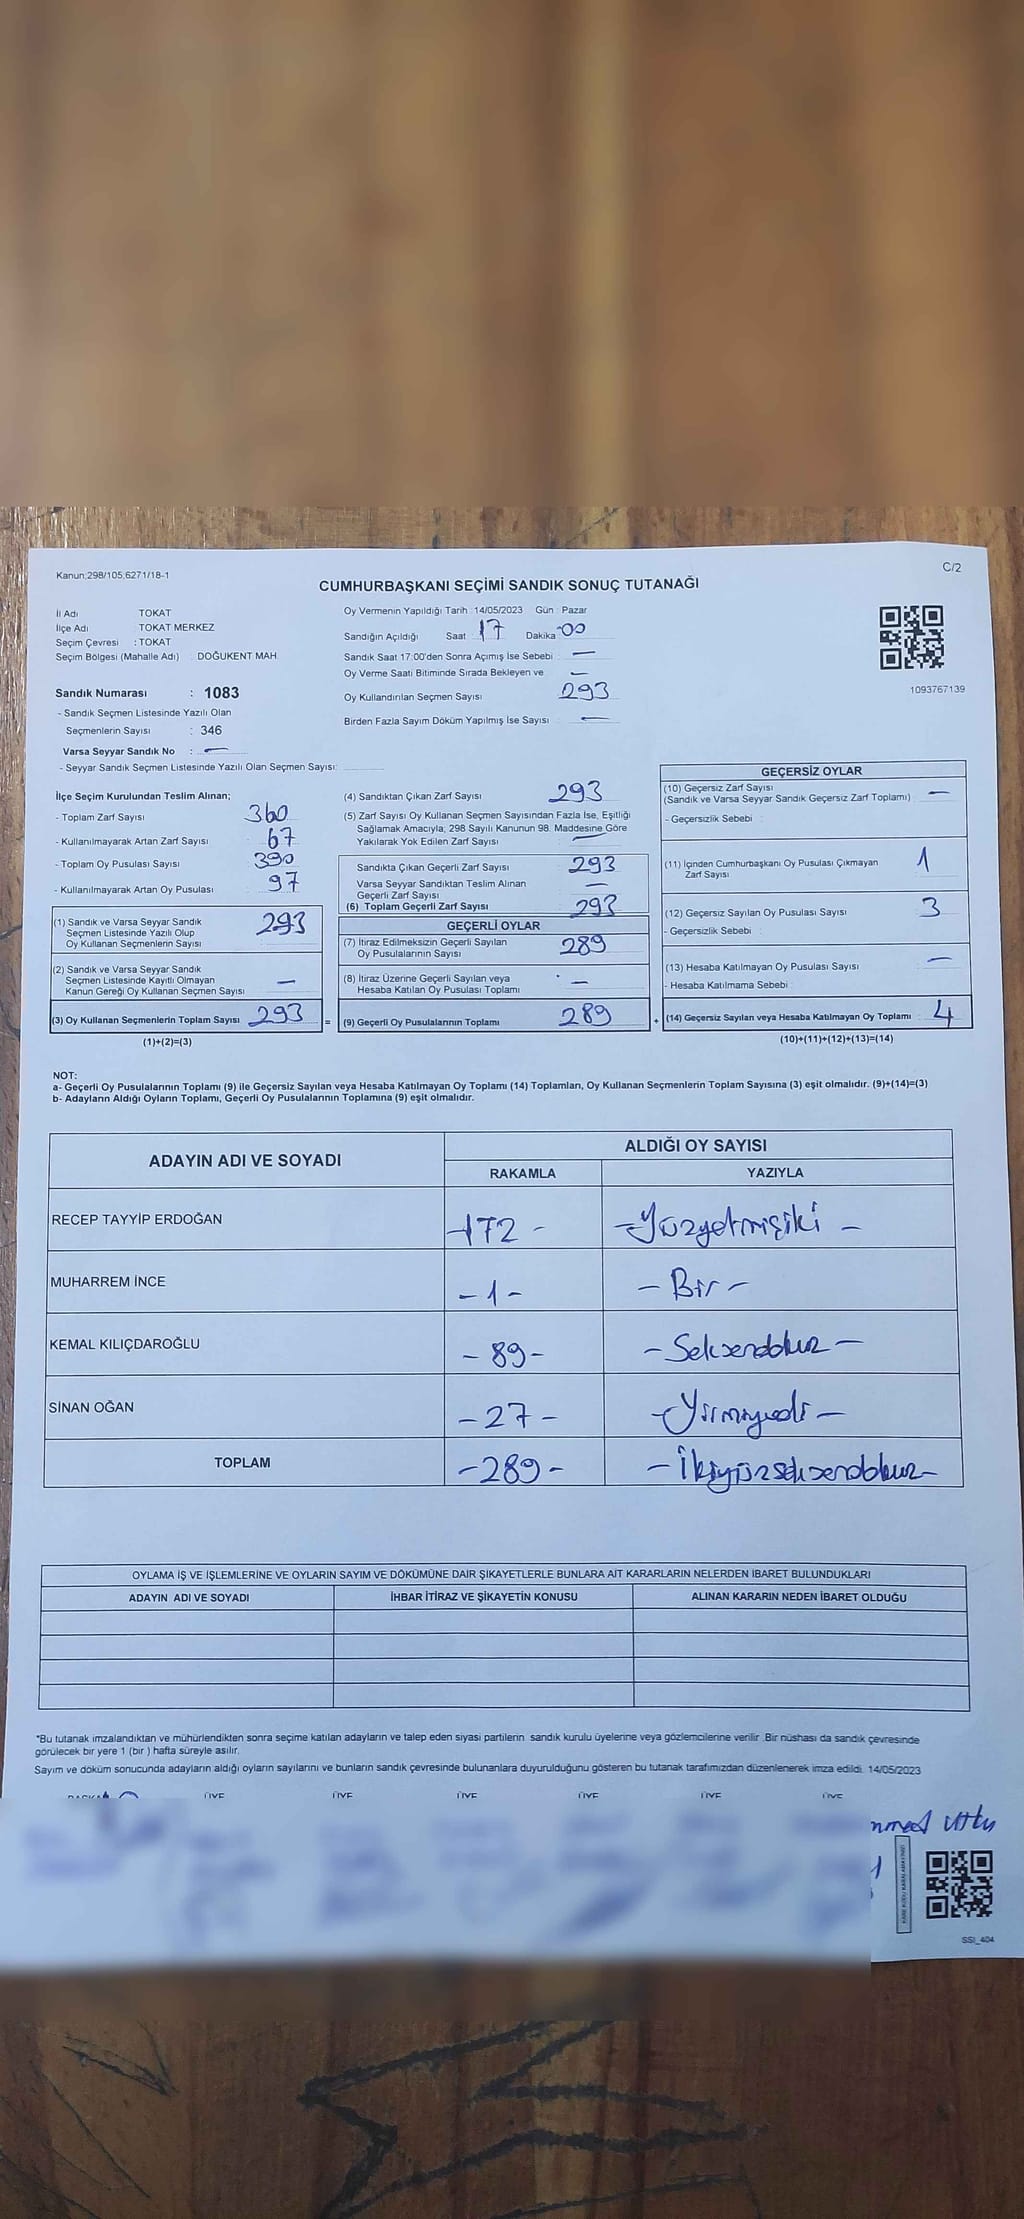 Kanun;298/105;6271/18-1
C/2
CUMHURBAŞKANI SEÇİMİ SANDIK SONUÇ TUTANAĞI
İl Adı TOKAT
İlçe Adı : TOKAT MERKEZ
Seçim Çevresi : TOKAT
Seçim Bölgesi (Mahalle Adı) DOĞUKENT MAH.
Sandık Numarası : 1083
- Sandık Seçmen Listesinde Yazılı Olan
Seçmenlerin Sayısı : 346
Varsa Seyyar Sandık No : —
- Seyyar Sandık Seçmen Listesinde Yazılı Olan Seçmen Sayısı:
Oy Vermenin Yapıldığı Tarih :14/05/2023 Gün : Pazar
Sandığın Açıldığı Saat 17 Dakika 00
Sandık Saat 17:00'den Sonra Açımış İse Sebebi : —
Oy Verme Saati Bitiminde Sırada Bekleyen ve —
Oy Kullandırılan Seçmen Sayısı 293
Birden Fazla Sayım Döküm Yapılmış İse Sayısı —
1093767139
İlçe Seçim Kurulundan Teslim Alınan;
- Toplam Zarf Sayısı 360
- Kullanılmayarak Artan Zarf Sayısı 67
- Toplam Oy Pusulası Sayısı 390
- Kullanılmayarak Artan Oy Pusulası 97
(1) Sandık ve Varsa Seyyar Sandık
Seçmen Listesinde Yazılı Olup
Oy Kullanan Seçmenlerin Sayısı 293
(2) Sandık ve Varsa Seyyar Sandık
Seçmen Listesinde Kayıtlı Olmayan
Kanun Gereği Oy Kullanan Seçmen Sayısı —
(3) Oy Kullanan Seçmenlerin Toplam Sayısı 293
(1)+(2)=(3)
(4) Sandıktan Çıkan Zarf Sayısı 293
(5) Zarf Sayısı Oy Kullanan Seçmen Sayısından Fazla İse, Eşitliği
Sağlamak Amacıyla; 298 Sayılı Kanunun 98. Maddesine Göre
Yakılarak Yok Edilen Zarf Sayısı —
Sandıkta Çıkan Geçerli Zarf Sayısı 293
Varsa Seyyar Sandıktan Teslim Alınan
Geçerli Zarf Sayısı —
(6) Toplam Geçerli Zarf Sayısı 293
GEÇERLİ OYLAR
(7) İtiraz Edilmeksizin Geçerli Sayılan
Oy Pusulalarının Sayısı 289
(8) İtiraz Üzerine Geçerli Sayılan veya
Hesaba Katılan Oy Pusulası Toplamı —
= (9) Geçerli Oy Pusulalarının Toplamı 289
GEÇERSİZ OYLAR
(10) Geçersiz Zarf Sayısı
(Sandık ve Varsa Seyyar Sandık Geçersiz Zarf Toplamı) —
- Geçersizlik Sebebi :
(11) İçinden Cumhurbaşkanı Oy Pusulası Çıkmayan
Zarf Sayısı 1
(12) Geçersiz Sayılan Oy Pusulası Sayısı 3
- Geçersizlik Sebebi :
(13) Hesaba Katılmayan Oy Pusulası Sayısı —
- Hesaba Katılmama Sebebi
+ (14) Geçersiz Sayılan veya Hesaba Katılmayan Oy Toplamı 4
(10)+(11)+(12)+(13)=(14)
NOT:
a- Geçerli Oy Pusulalarının Toplamı (9) ile Geçersiz Sayılan veya Hesaba Katılmayan Oy Toplamı (14) Toplamları, Oy Kullanan Seçmenlerin Toplam Sayısına (3) eşit olmalıdır. (9)+(14)=(3)
b- Adayların Aldığı Oyların Toplamı, Geçerli Oy Pusulalarının Toplamına (9) eşit olmalıdır.
ADAYIN ADI VE SOYADI ALDIĞI OY SAYISI
RAKAMLA YAZIYLA
RECEP TAYYİP ERDOĞAN -172- -Yüzyetmişiki-
MUHARREM İNCE -1- -Bir-
KEMAL KILIÇDAROĞLU -89- -Seksendokuz-
SİNAN OĞAN -27- -Yirmiyedi-
TOPLAM -289- -İkiyüzseksendokuz-
OYLAMA İŞ VE İŞLEMLERİNE VE OYLARIN SAYIM VE DÖKÜMÜNE DAİR ŞİKAYETLERLE BUNLARA AİT KARARLARIN NELERDEN İBARET BULUNDUKLARI
ADAYIN ADI VE SOYADI İHBAR İTİRAZ VE ŞİKAYETİN KONUSU ALINAN KARARIN NEDEN İBARET OLDUĞU
*Bu tutanak imzalandıktan ve mühürlendikten sonra seçime katılan adayların ve talep eden siyasi partilerin sandık kurulu üyelerine veya gözlemcilerine verilir. Bir nüshası da sandık çevresinde
görülecek bir yere 1 (bir ) hafta süreyle asılır.
Sayım ve döküm sonucunda adayların aldığı oyların sayılarını ve bunların sandık çevresinde bulunanlara duyurulduğunu gösteren bu tutanak tarafımızdan düzenlenerek imza edildi. 14/05/2023
ÜYE ÜYE ÜYE ÜYE ÜYE ÜYE
SSI_404